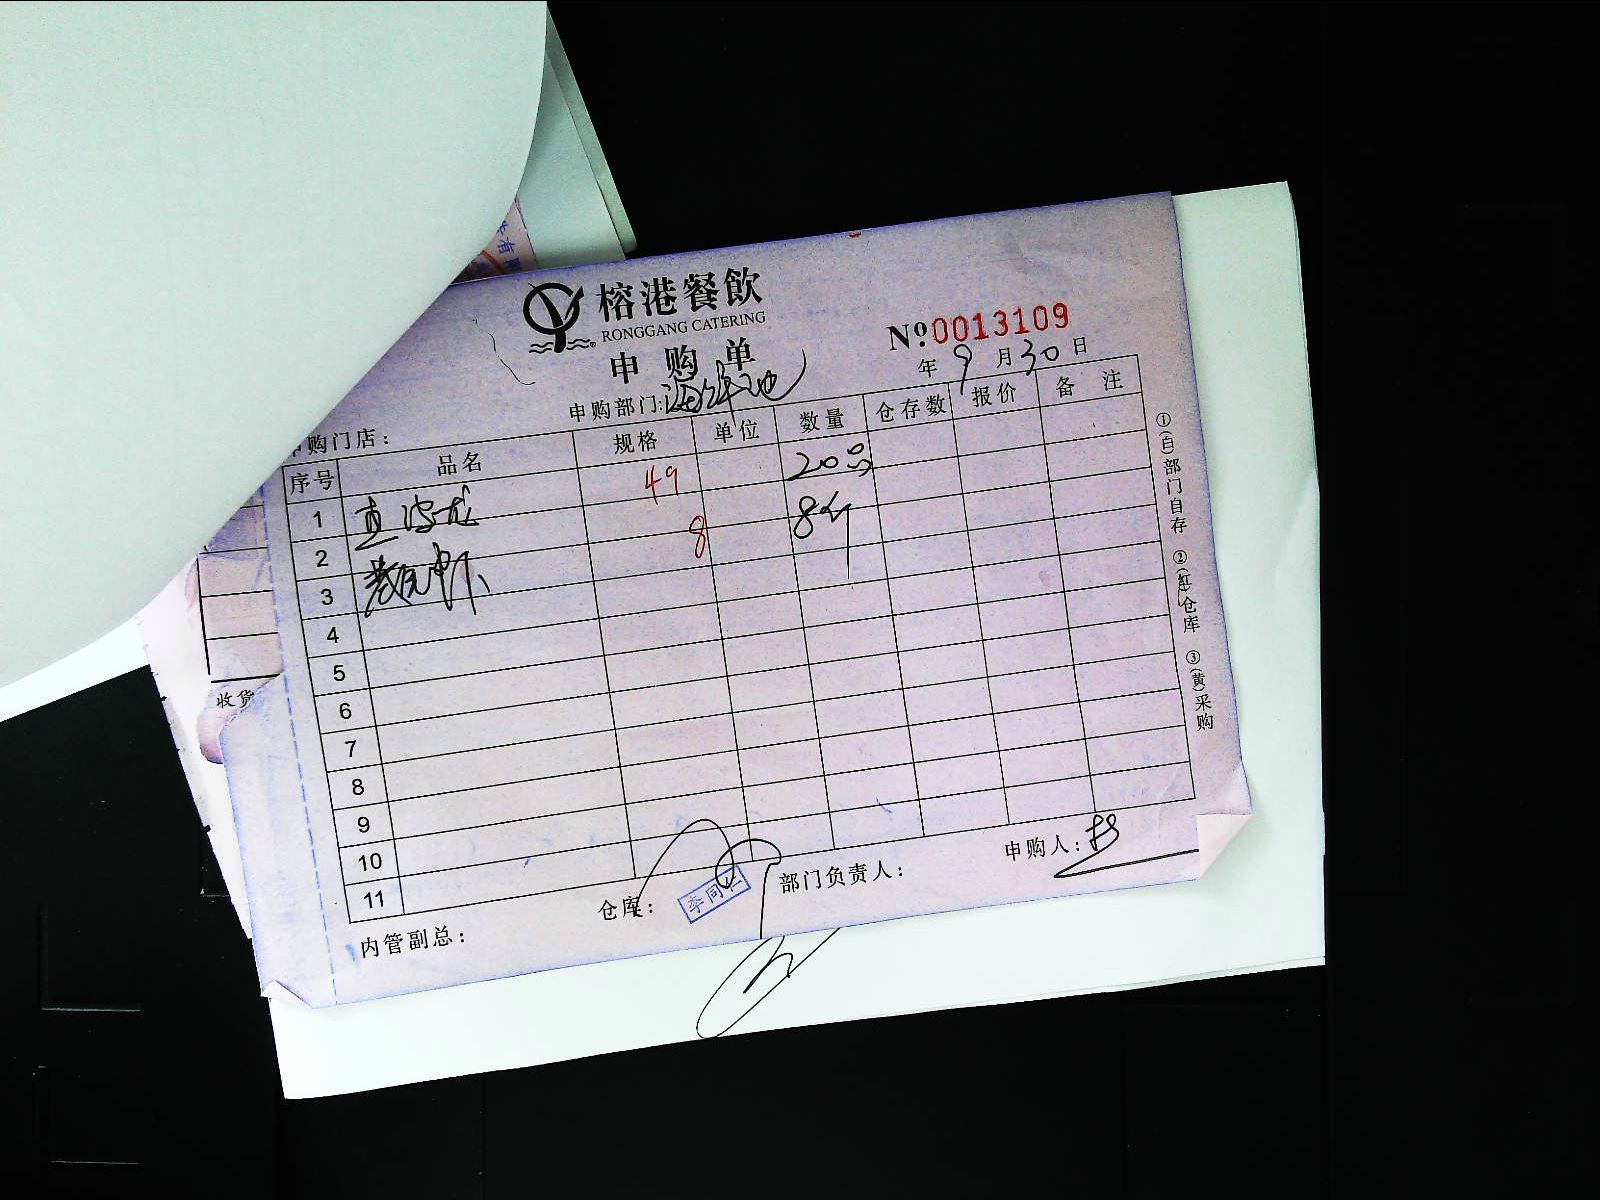 榕港餐飲
RONGGANG CATERING
申购单
Nº 0013109
年 9 月 30 日
申购部门:海鲜池
申购门店:
序号 品名 规格 单位 数量 仓存数 报价 备注
1 49 20
2 8 8个
3
4
5
6
7
8
9
10
11
①(白)部门自存 ②(红)仓库 ③(黄)采购
仓库: 李同仁
部门负责人:
申购人:
内管副总:
收货